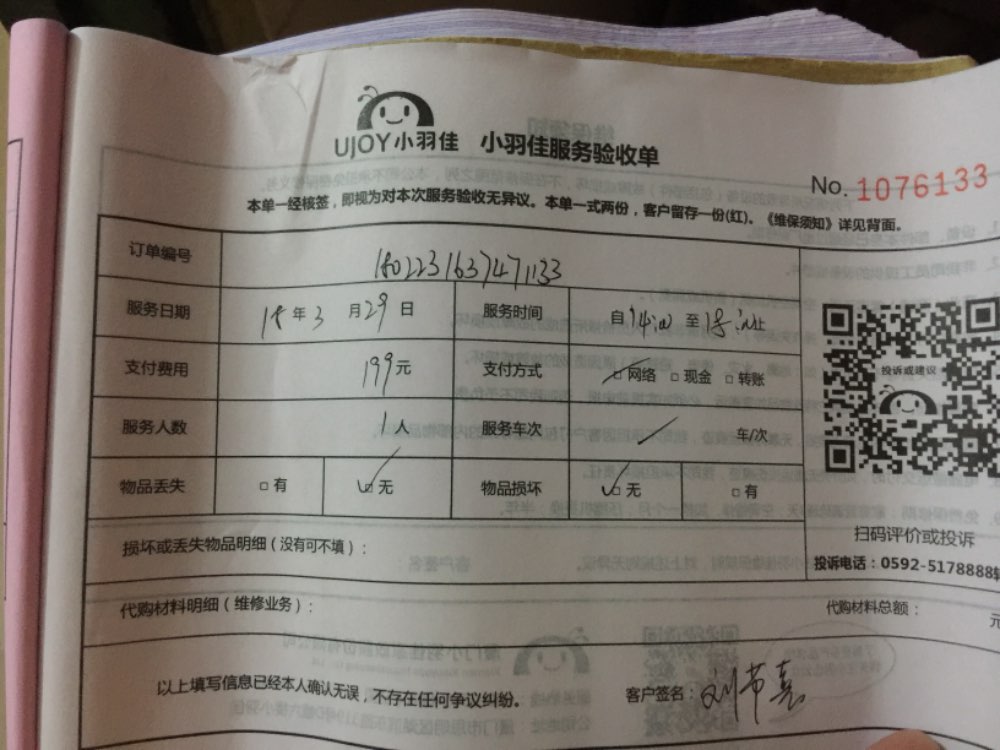 UJOY小羽佳 小羽佳服务验收单
No. 1076133
本单一经核签，即视为对本次服务验收无异议。本单一式两份，客户留存一份(红)。《维保须知》详见背面。
订单编号 1802231637471133
服务日期 18年3月29日 服务时间 自14:00至18:00止
支付费用 199元 支付方式 □网络 □现金 □转账
服务人数 1人 服务车次 车/次
物品丢失 □有 □无 物品损坏 □无 □有
投诉或建议
扫码评价或投诉
投诉电话：0592-5178888转
损坏或丢失物品明细（没有可不填）：
代购材料明细（维修业务）： 代购材料总额： 元
以上填写信息已经本人确认无误，不存在任何争议纠纷。 客户签名：